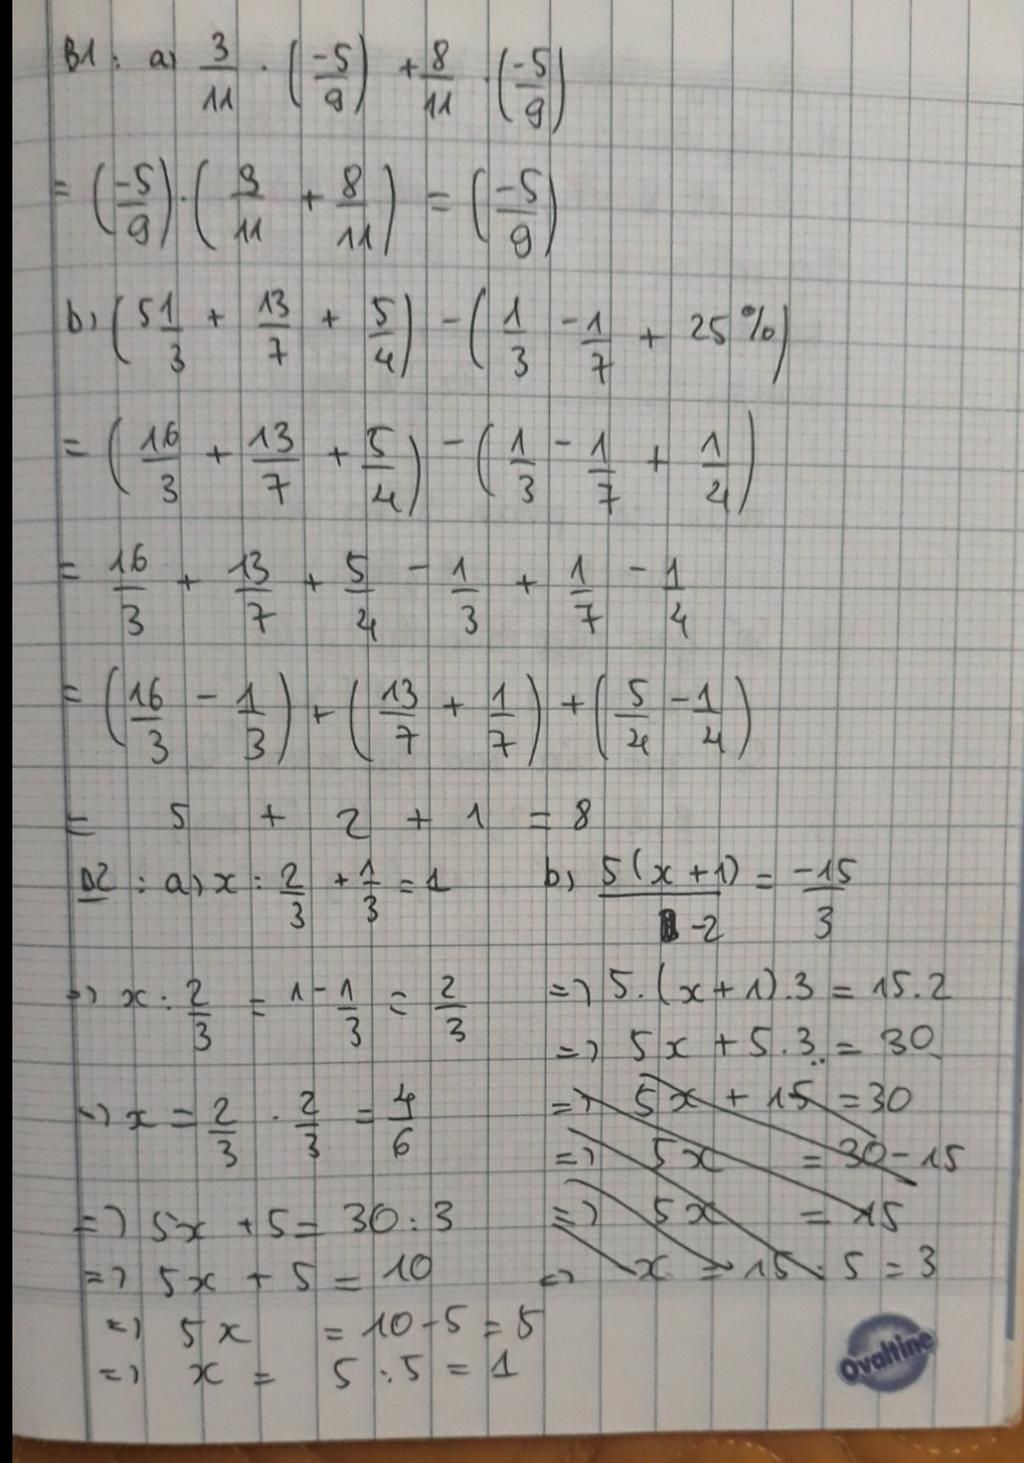 B1: a) 3/11 · (-5/9) + 8/11 · (-5/9)
= (-5/9) · (3/11 + 8/11) = (-5/9)
b) (5 1/3 + 13/7 + 5/4) - (1/3 - 1/7 + 25%)
= (16/3 + 13/7 + 5/4) - (1/3 - 1/7 + 1/4)
= 16/3 + 13/7 + 5/4 - 1/3 + 1/7 - 1/4
= (16/3 - 1/3) + (13/7 + 1/7) + (5/4 - 1/4)
= 5 + 2 + 1 = 8
B2: a) x : 2/3 + 1/3 = 1
=> x : 2/3 = 1 - 1/3 = 2/3
=> x = 2/3 · 2/3 = 4/6
b) 5(x+1)/-2 = -15/3
=> 5.(x+1).3 = 15.2
=> 5x + 5.3 = 30
=> 5x + 15 = 30
=> 5x = 30-15
=> 5x = 15
=> x = 15 : 5 = 3
=> 5x + 5 = 30 : 3
=> 5x + 5 = 10
=> 5x = 10-5 = 5
=> x = 5 : 5 = 1
Ovaltine